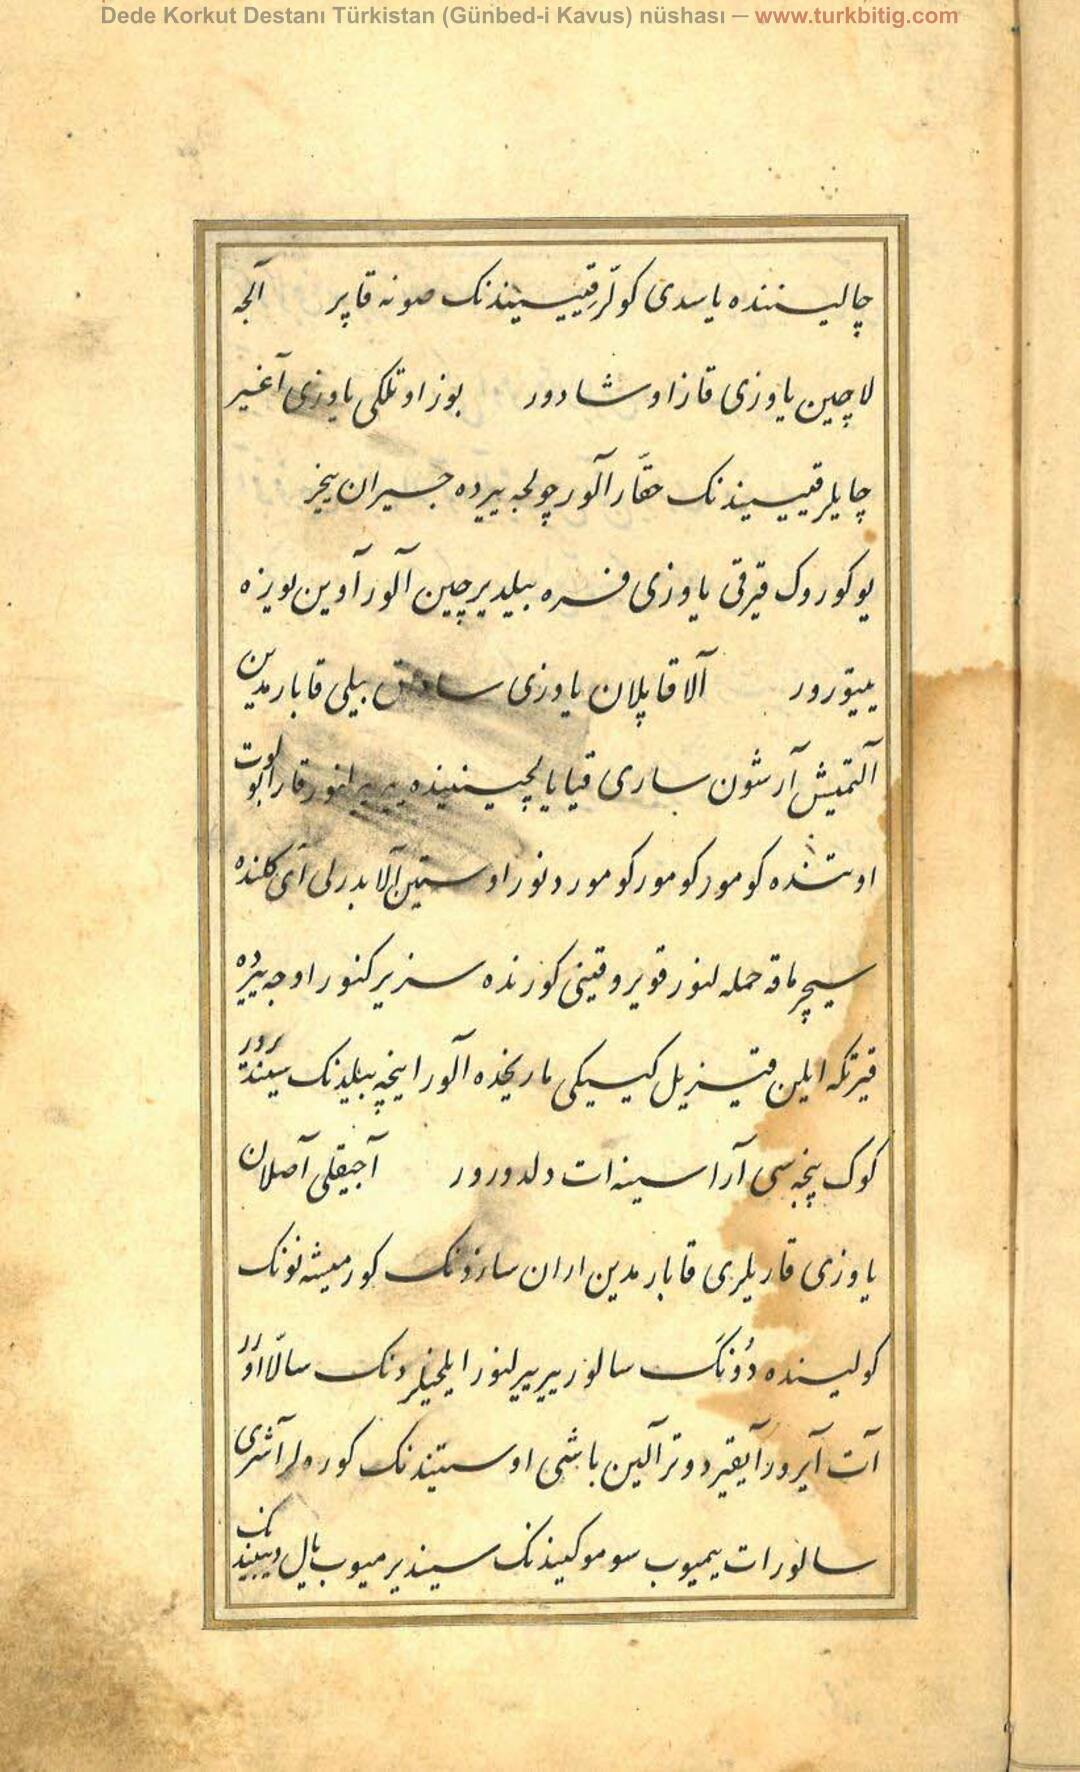 Dede Korkut Destanı Türkistan (Günbed-i Kavus) nüshası — www.turkbitig.com
چالیسننده یاسدی کوللر قییسیندنک صونه قاپر آلجه
لاچین یاوزی قاز اوشادور بوز اوتلکی یاوزی آغیر
چایلر قییسیندنک حقار آلور چولجه ییرده جسیران ینجر
یوکوروک قیرقی یاوزی فسره بیلدیرچین آلور آوین یویزه
ییتورور آلا قاپلان یاوزی بیلی قابارمدین
آلتمیش آرشون ساری قیا یالچیسیننده قارا بولوت
اوستنده کومور کومور کومور دونور اوستین آلا بدرلی آی کلنده
سیچرماقه حمله لنور قویروقینی کورنده سزیرکنور اوجه ییرده
قیرتکه ایلین قیزیل کیسیکی ماریخده آلور اینچه بیلیدنک
کوک پنجه سی آراسینه ات دلدورور آجیقلی آصلان
یاوزی قاریلری قابارمدین اران سازونک کورمیشه نونک
کولیسنده دؤنک سالور ییرییرلنور ایلخیلردنک ساللااور
آت آیرور آیقیر دوتر آلین باشی اوستیندنک کوره لر آشری
سالور ات ییمیوب سوموکیندنک سیندیرمیوب یال